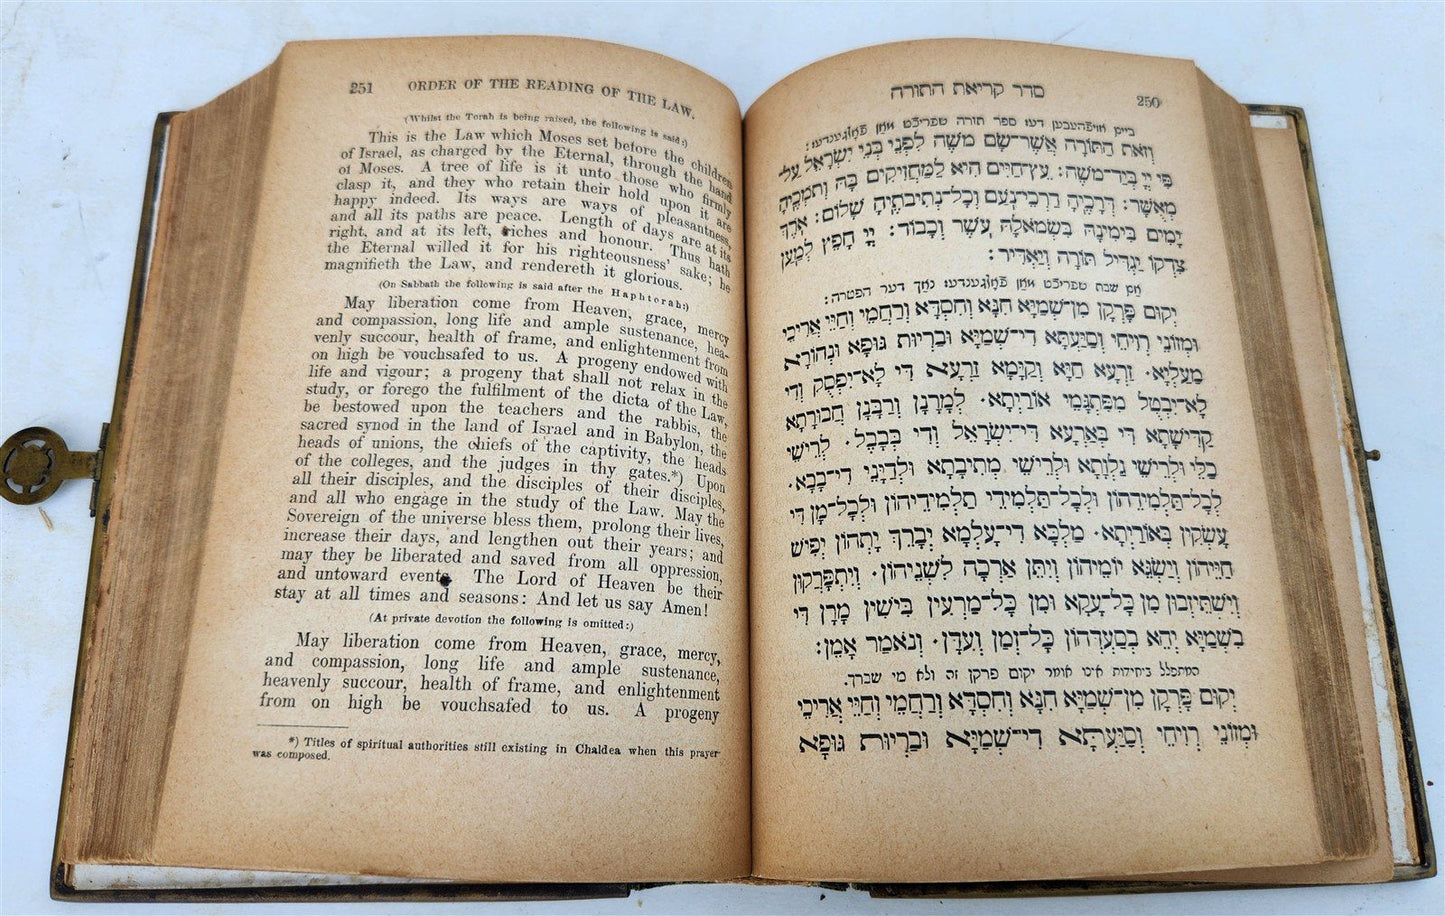 251 ORDER OF THE READING OF THE LAW.
(Whilst the Torah is being raised, the following is said:)
This is the Law which Moses set before the children
of Israel, as charged by the Eternal, through the hand
of Moses. A tree of life is it unto those who firmly
clasp it, and they who retain their hold upon it are
happy indeed. Its ways are ways of pleasantness,
and all its paths are peace. Length of days are at its
right, and at its left, riches and honour. Thus hath
the Eternal willed it for his righteousness' sake; he
magnifieth the Law, and rendereth it glorious.
(On Sabbath the following is said after the Haphtorah:)
May liberation come from Heaven, grace, mercy
and compassion, long life and ample sustenance, hea-
venly succour, health of frame, and enlightenment from
on high be vouchsafed to us. A progeny endowed with
life and vigour; a progeny that shall not relax in the
study, or forego the fulfilment of the dicta of the Law,
be bestowed upon the teachers and the rabbis, the
sacred synod in the land of Israel and in Babylon, the
heads of unions, the chiefs of the captivity, the heads
of the colleges, and the judges in thy gates.*) Upon
all their disciples, and the disciples of their disciples,
and all who engage in the study of the Law. May the
Sovereign of the universe bless them, prolong their lives,
increase their days, and lengthen out their years; and
may they be liberated and saved from all oppression,
and untoward events. The Lord of Heaven be their
stay at all times and seasons: And let us say Amen!
(At private devotion the following is omitted:)
May liberation come from Heaven, grace, mercy,
and compassion, long life and ample sustenance,
heavenly succour, health of frame, and enlightenment
from on high be vouchsafed to us. A progeny
*) Titles of spiritual authorities still existing in Chaldea when this prayer
was composed.
סדר קריאת התורה 250
ביים אויפהעבען דעז ספר תורה שפריכט מאן פאלגענדעז:
וְזֹאת הַתּוֹרָה אֲשֶׁר־שָׂם משֶׁה לִפְנֵי בְּנֵי יִשְׂרָאֵל עַל־
פִּי יְיָ בְּיַד־משֶׁה: עֵץ־חַיִּים הִיא לַמַּחֲזִיקִים בָּהּ וְתֹמְכֶיהָ
מְאֻשָּׁר: דְּרָכֶיהָ דַרְכֵי־נֹעַם וְכָל־נְתִיבֹתֶיהָ שָׁלוֹם: אֹרֶךְ
יָמִים בִּימִינָהּ בִּשְׂמֹאלָהּ עֹשֶׁר וְכָבוֹד: יְיָ חָפֵץ לְמַעַן
צִדְקוֹ יַגְדִּיל תּוֹרָה וְיַאְדִּיר:
אם שבת שפריכט מאן פאלגענדעז נאך דער הפטרה:
יְקוּם פֻּרְקָן מִן־שְׁמַיָּא חִנָּא וְחִסְדָּא וְרַחֲמֵי וְחַיֵּי אֲרִיכֵי
וּמְזוֹנֵי רְוִיחֵי וְסַיַּעְתָּא דִי־שְׁמַיָּא וּבַרְיוּת גּוּפָא וּנְהוֹרָא
מַעַלְיָא. זַרְעָא חַיָּא וְקַיָּמָא זַרְעָא דִּי לָא־יִפְסֻק וְדִי
לָא־יִבְטֻל מִפִּתְגָּמֵי אוֹרַיְתָא. לְמָרָנָן וְרַבָּנָן חֲבוּרָתָא
קַדִּישָׁתָא דִּי בְּאַרְעָא דִי־יִשְׂרָאֵל וְדִי בְּבָבֶל. לְרֵישֵׁי
כַלֵּי וּלְרֵישֵׁי גַלְוָתָא וּלְרֵישֵׁי מְתִיבָתָא וּלְדַיָּנֵי דִי־בָבָא.
לְכָל־תַּלְמִידֵיהוֹן וּלְכָל־תַּלְמִידֵי תַלְמִידֵיהוֹן וּלְכָל־מָן דִּי
עָסְקִין בְּאוֹרַיְתָא. מַלְכָּא דִי־עָלְמָא יְבָרֵךְ יָתְהוֹן יַפִּישׁ
חַיֵּיהוֹן וְיַשְׂגֵּא יוֹמֵיהוֹן וְיִתֵּן אַרְכָה לִשְׁנֵיהוֹן. וְיִתְפָּרְקוּן
וְיִשְׁתֵּיזְבוּן מִן כָּל־עָקָא וּמִן כָּל־מַרְעִין בִּישִׁין מָרָן דִּי
בִשְׁמַיָּא יְהֵא בְסַעְדְּהוֹן כָּל־זְמַן וְעִדָּן. וְנֹאמַר אָמֵן:
המתפלל ביחידות אינו אומר יקום פרקן זה ולא מי שברך.
יְקוּם פֻּרְקָן מִן־שְׁמַיָּא חִנָּא וְחִסְדָּא וְרַחֲמֵי וְחַיֵּי אֲרִיכֵי
וּמְזוֹנֵי רְוִיחֵי וְסַיַּעְתָּא דִי־שְׁמַיָּא וּבַרְיוּת גּוּפָא